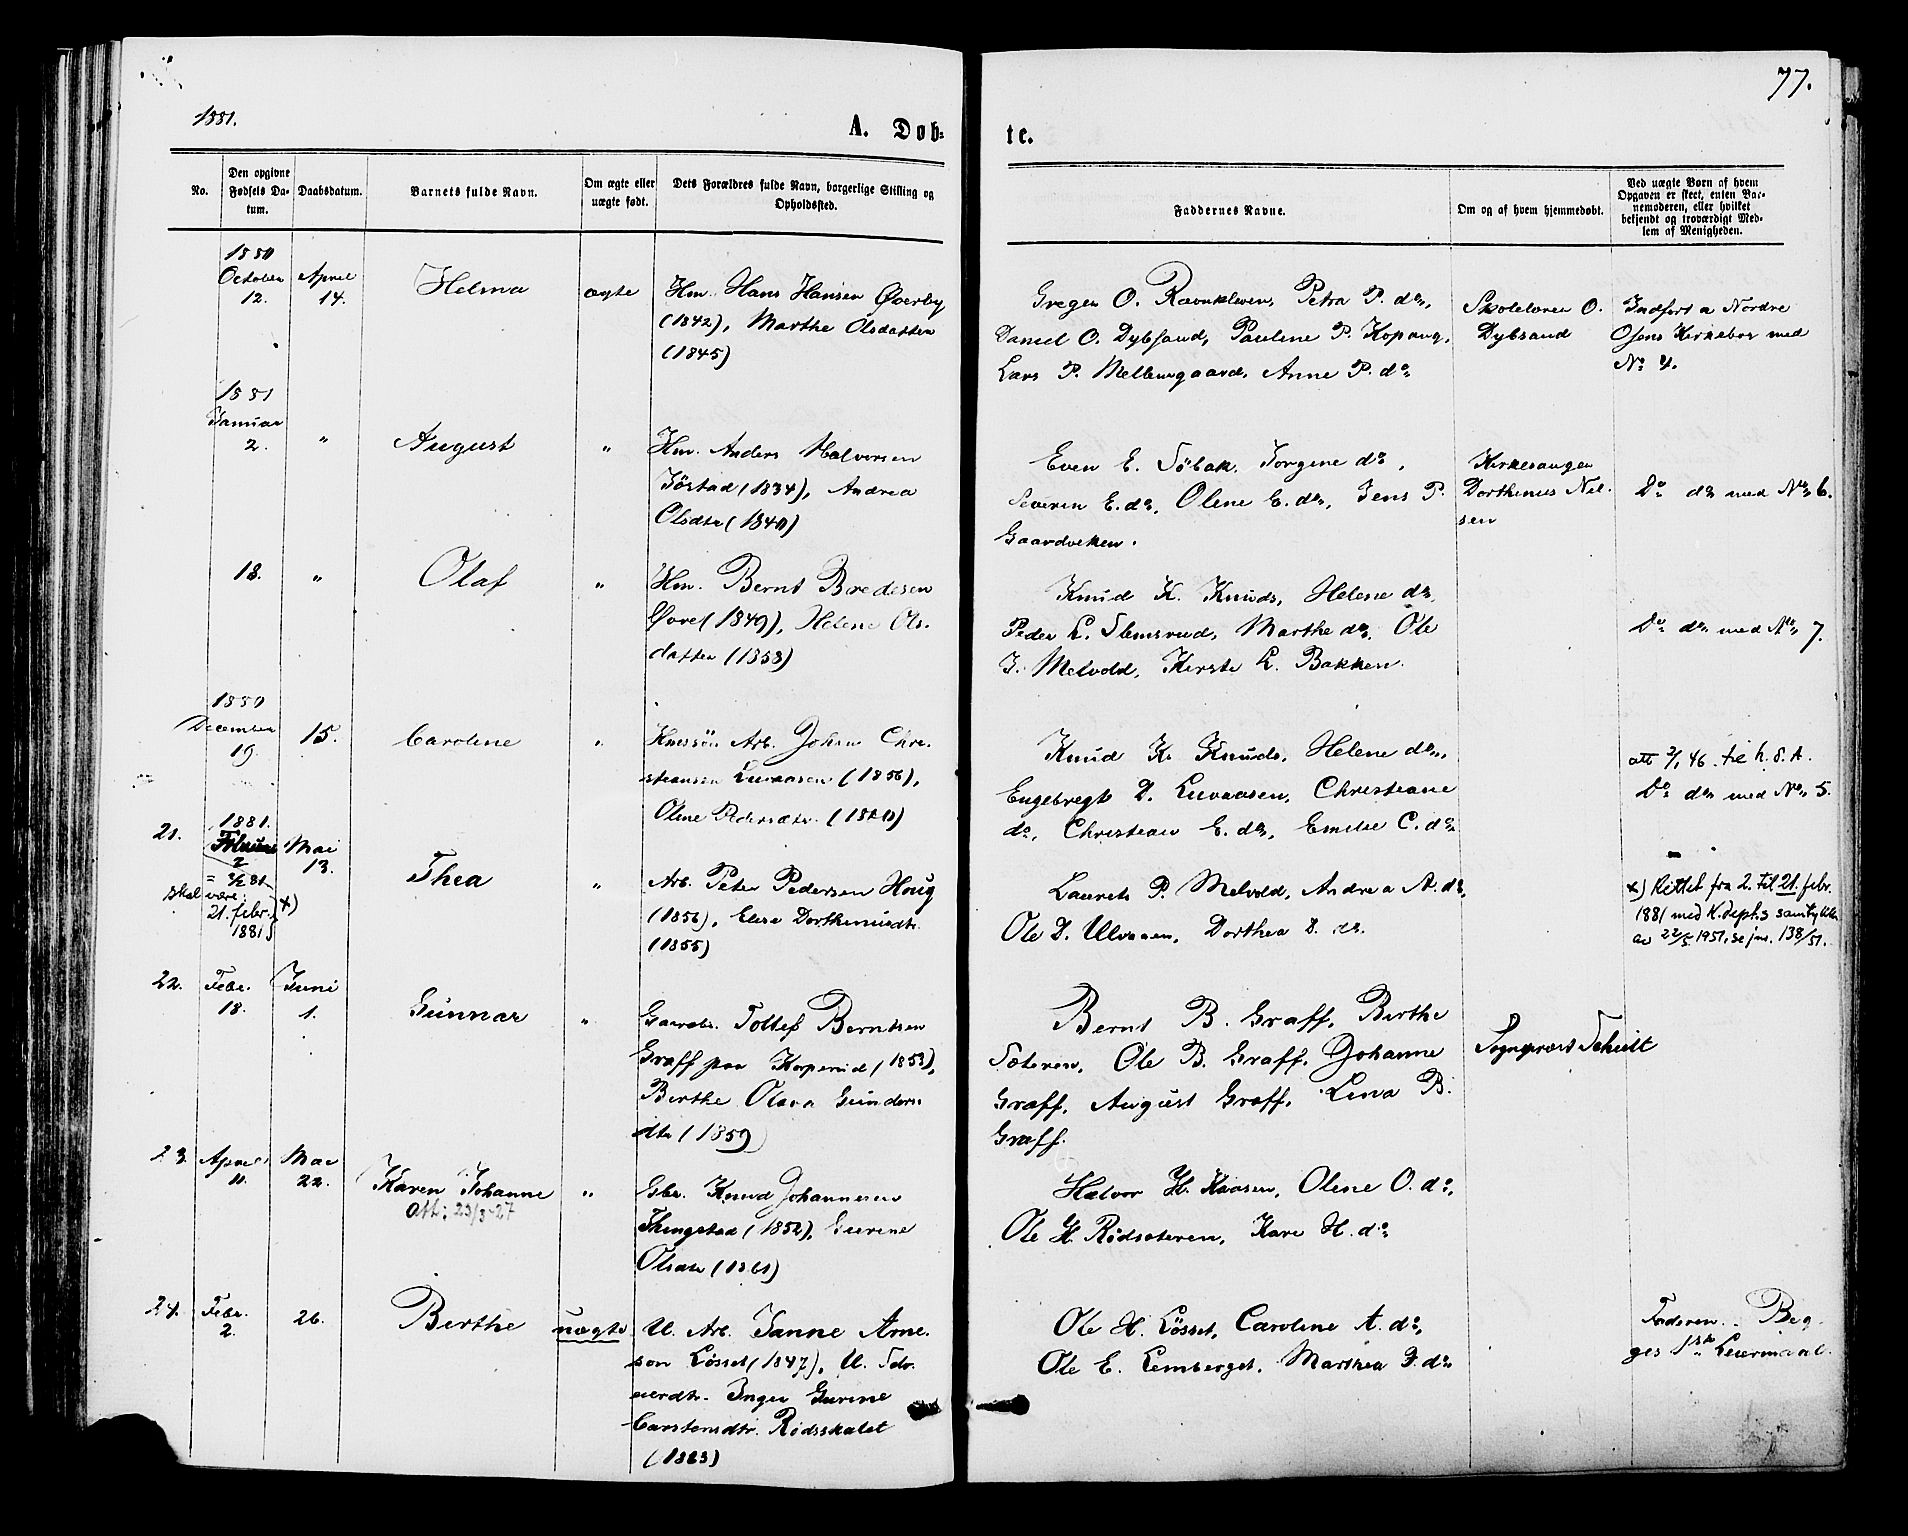 77.
1881.
A. Døb-
te.
No.
Den opgivne
Fødsels Da-
tum.
Daabsdatum.
Barnets fulde Navn.
Om ægte eller
uægte født.
Dets Forældres fulde Navn, borgerlige Stilling og
Opholdssted.
Faddernes Navne.
Om og af hvem hjemmedøbt.
Ved uægte Børn af hvem
Opgaven er skeet, enten Bar-
nemoderen, eller hvilket
bekjendt og troværdigt Med-
lem af Menigheden.
1880
October
12.
April
14.
Helma
ægte
Hm. Hans Hansen Øverby
(1842), Marthe Olsdatter
(1845)
Greger O. Ravnkleven, Petra P. do,
Daniel O. Dybsand, Pauline P. Kopang,
Lars P. Mellemgaard, Anne P. do
Skolelærer O.
Dybsand
Indført i Nordre
Osens Kirkebog med
No 4.
1881
Januar
2.
"
August
"
Hm. Anders Halvorsen
(1834), Andrea
Olsdtr (1840)
Even E. Søbak, Jorgine do,
Severin E. do, Oline E. do, Jens P.
Gaardviken.
Kirkesanger
Dorthenus Nil-
sen
Do do med No 6.
18.
"
Olaf
"
Hm. Bernt Bredesen
Øvre (1849), Helene Ols-
datter (1858)
Knud K. Knuds, Helene do,
Peder L. Slemsrud, Marthe do, Ole
J. Melvold, Kersti L. Bakken.
Do do med No 7.
1880
December
19.
15.
Caroline
"
Arb. Johan Chri-
stiansen Luvaasen (1856),
Oline Pedersdtr.
Knud K. Knuds, Helene do,
Engebregt D. Luvaasen, Christiane
do, Christian E. do, Emilie C. do
att 2/1 46. til h.s.A.
Do do med No 5.
21.
1881.
Februar
2
= 2/2 81
skal være:
21. febr.
1881
x)
Mai
13.
Thea
"
Arb. Peter Pedersen Haug
(1856), Elise Dorthenusdtr.
(1855)
Laurits P. Melvold, Andrea A. do,
Ole D. Ulvaaen, Dorthea D. do.
x) Rettet fra 2. til 21. febr.
1881 med K.dept.s samtykke
av 22/5 1951, se jnr. 138/51.
22.
Febr.
18.
Juni
1.
Gunnar
"
Gaardbr. Tollef Berntsen
Graff paa Korperud (1853),
Berthe Olava Gunders-
dtr (1859)
Bernt B. Graff, Berthe
Sæteren, Ole B. Graff, Johanne
Graff, August Graff, Lina B.
Graff.
Sognepræst Schult
23.
April
11.
Mai
22.
Karen Johanne
Att: 23/3-27
"
Gbr. Knud Johannesen
Thingstad (1852), Gurine
Olsdtr (1861)
Halvor H. Kaasen, Oline O. do,
Ole H. Rødsæteren, Kari H. do
24.
Febr.
2.
26.
Berthe
uægte
U. Arb. Janne Arne-
sen Løsset (1847), U.
Inger Gurine
Carstensdtr. Rødsskalet
Ole H. Løsset, Caroline A. do,
Ole E. Lemberget, Marthea P. do
Faderen. Beg-
ges 1ste Leiermaal.